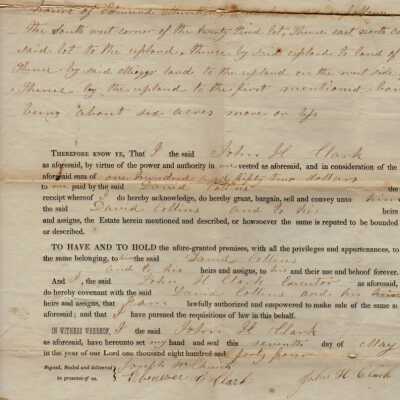 the South west corner of the twenty third lot, thence east sixty
said lot to the upland, thence by said upland to land of
thence by said Meiggs land to the upland on the west side
thence by the upland to the first mentioned
being about six acres more or less
THEREFORE KNOW YE, That I the said John H Clark
as aforesaid, by virtue of the power and authority in me vested as aforesaid, and in consideration of the
aforesaid sum of one hundred and fifty two dollars
to me paid by the said David Collins the
receipt whereof I do hereby acknowledge, do hereby grant, bargain, sell and convey unto him
the said David Collins and to his heirs
and assigns, the Estate herein mentioned and described, or howsoever the same is reputed to be bounded
or described.
TO HAVE AND TO HOLD the afore-granted premises, with all the privileges and appurtenances, to
the same belonging, to the said David Collins
and to his heirs and assigns, to his and their use and behoof forever.
And I, the said John H Clark Executor as aforesaid,
do hereby covenant with the said David Collins and his
heirs and assigns, that I am lawfully authorized and empowered to make sale of the same as
aforesaid; and that I have pursued the requisitions of law in this behalf.
IN WITNESS WHEREOF, I the said John H Clark
as aforesaid, have hereunto set my hand and seal this seventh day of May
in the year of our Lord one thousand eight hundred and forty four
Signed, Sealed and delivered Joseph
in presence of us. Ebenezer Clark John H Clark